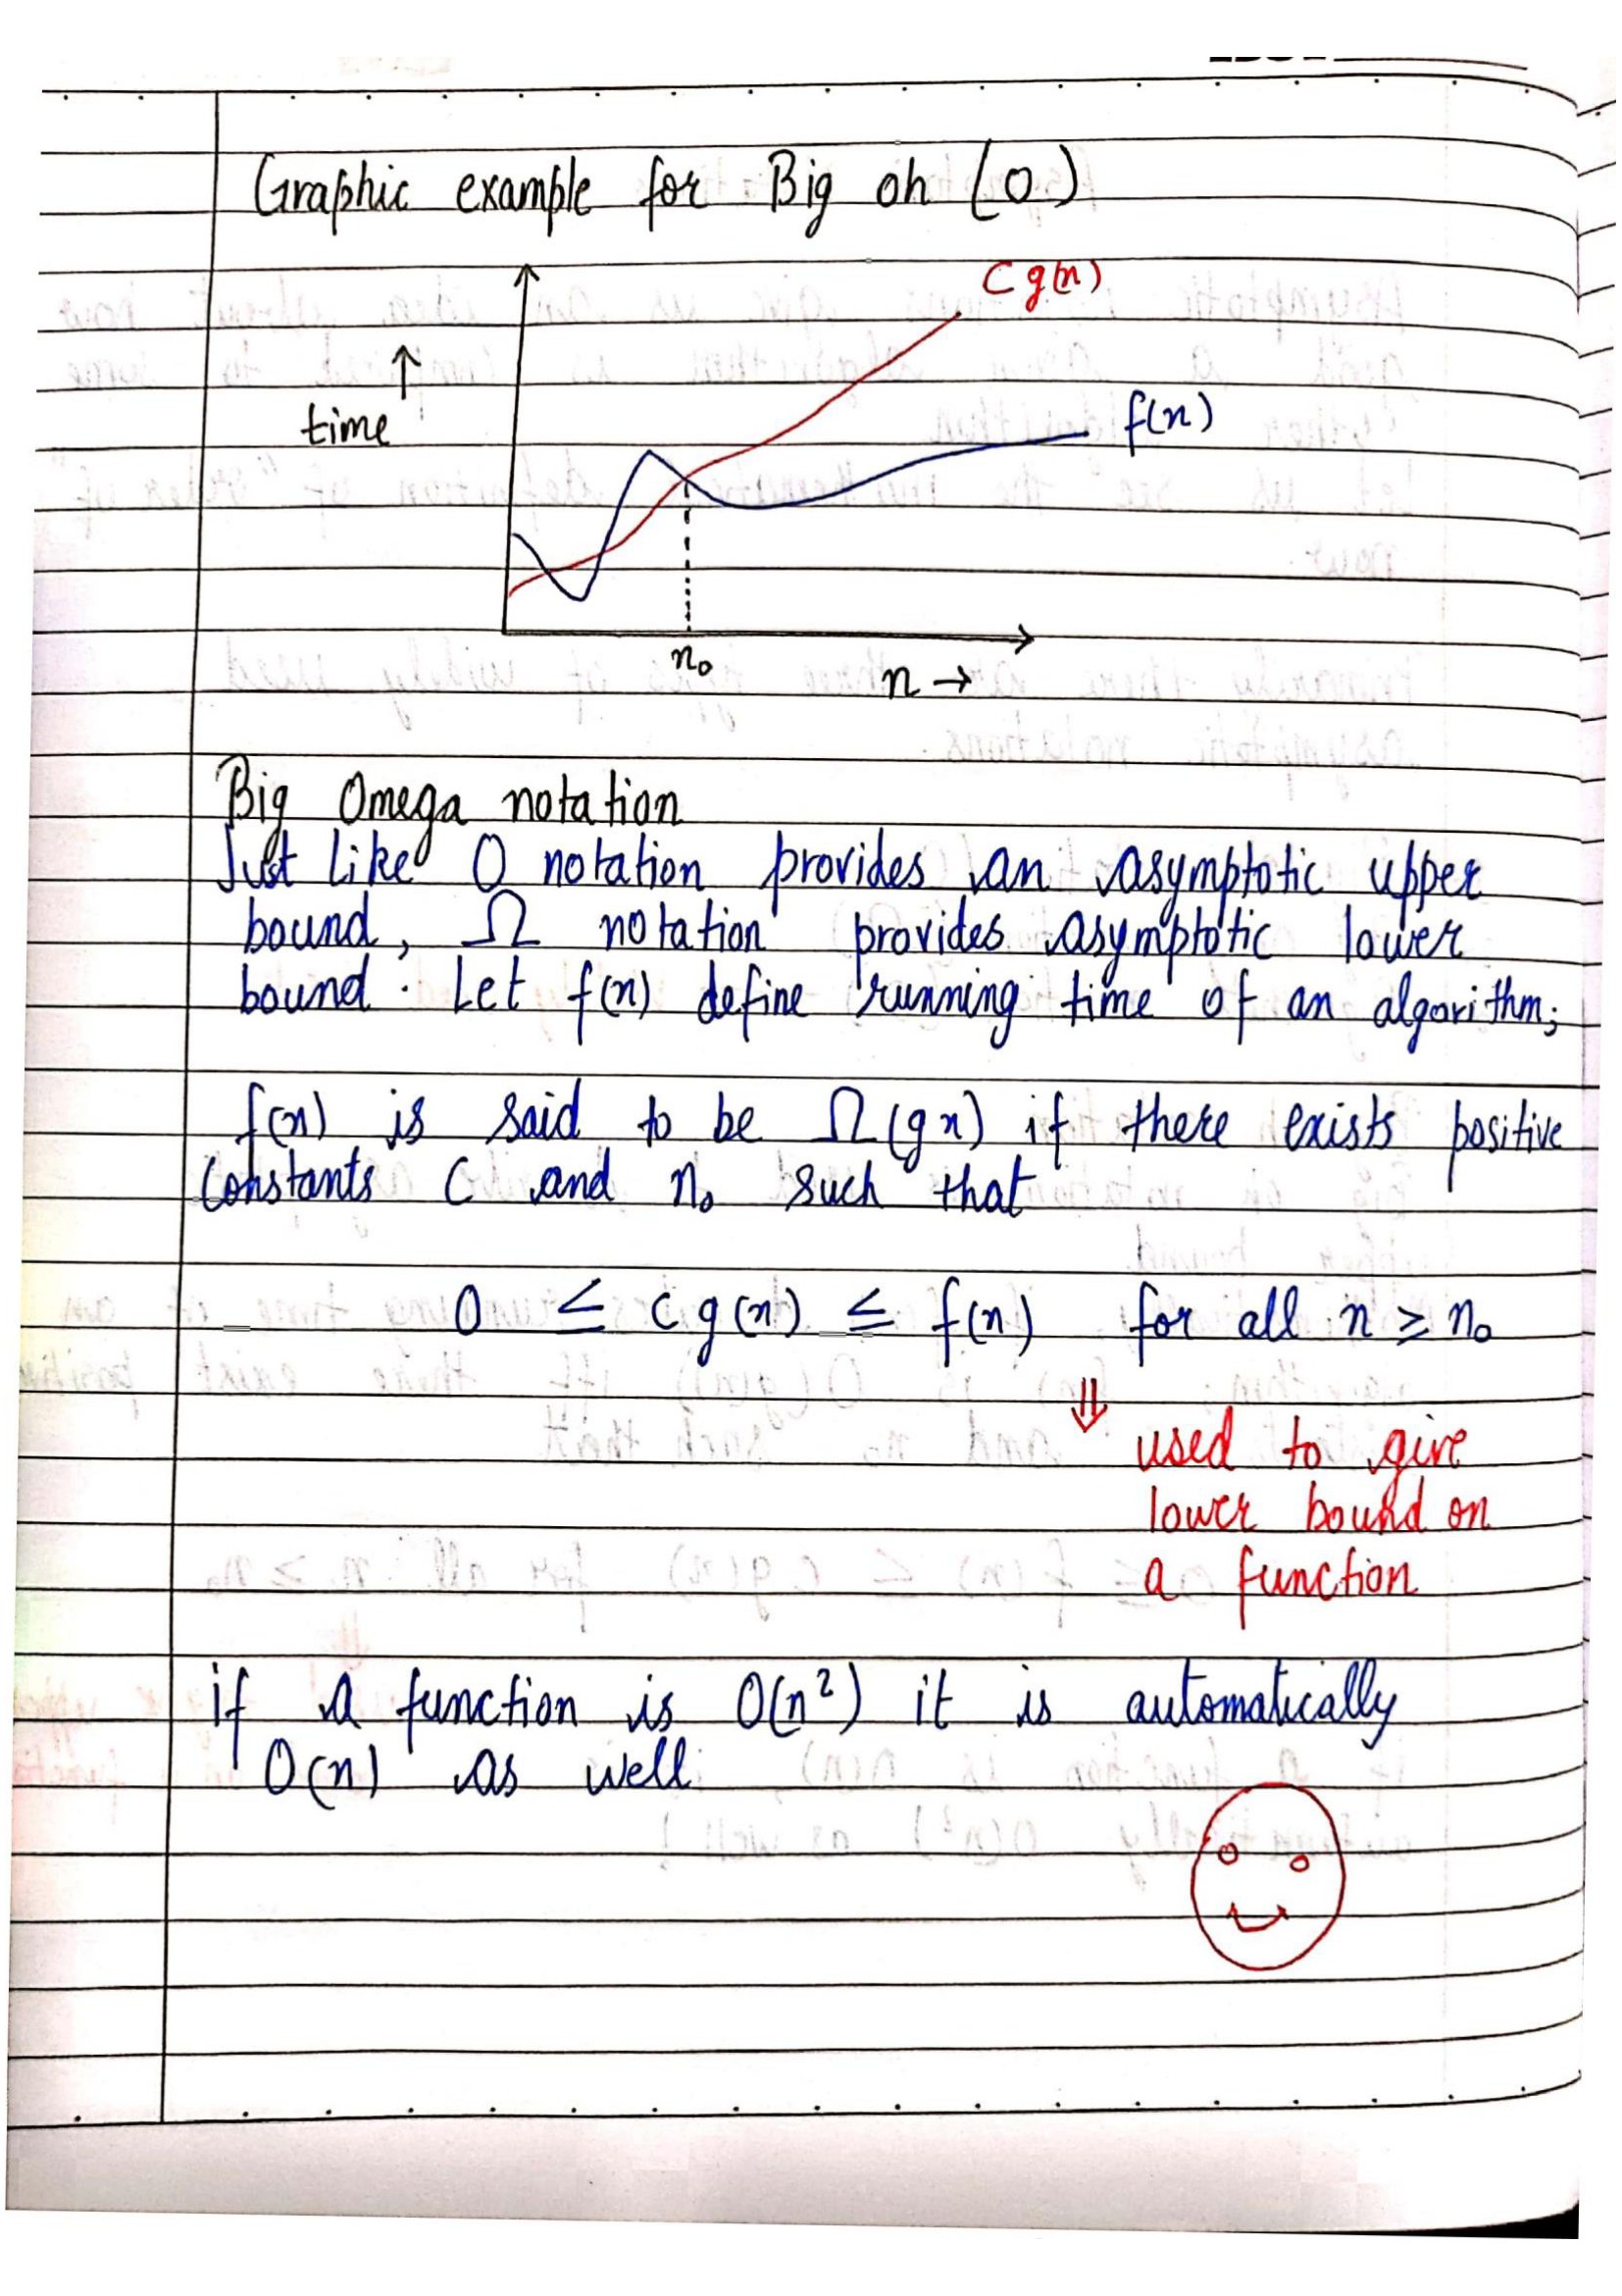 Graphic example for Big oh (O)
C g(n)
time ↑
f(n)
n₀
n →
Big Omega notation
Just like O notation provides an asymptotic upper
bound, Ω notation provides asymptotic lower
bound. Let f(n) define running time of an algorithm;
f(n) is said to be Ω(gn) if there exists positive
Constants C and n₀ such that
0 ≤ c g(n) ≤ f(n) for all n ≥ n₀
⇓
used to give
lower bound on
a function
if a function is O(n²) it is automatically
O(n) as well